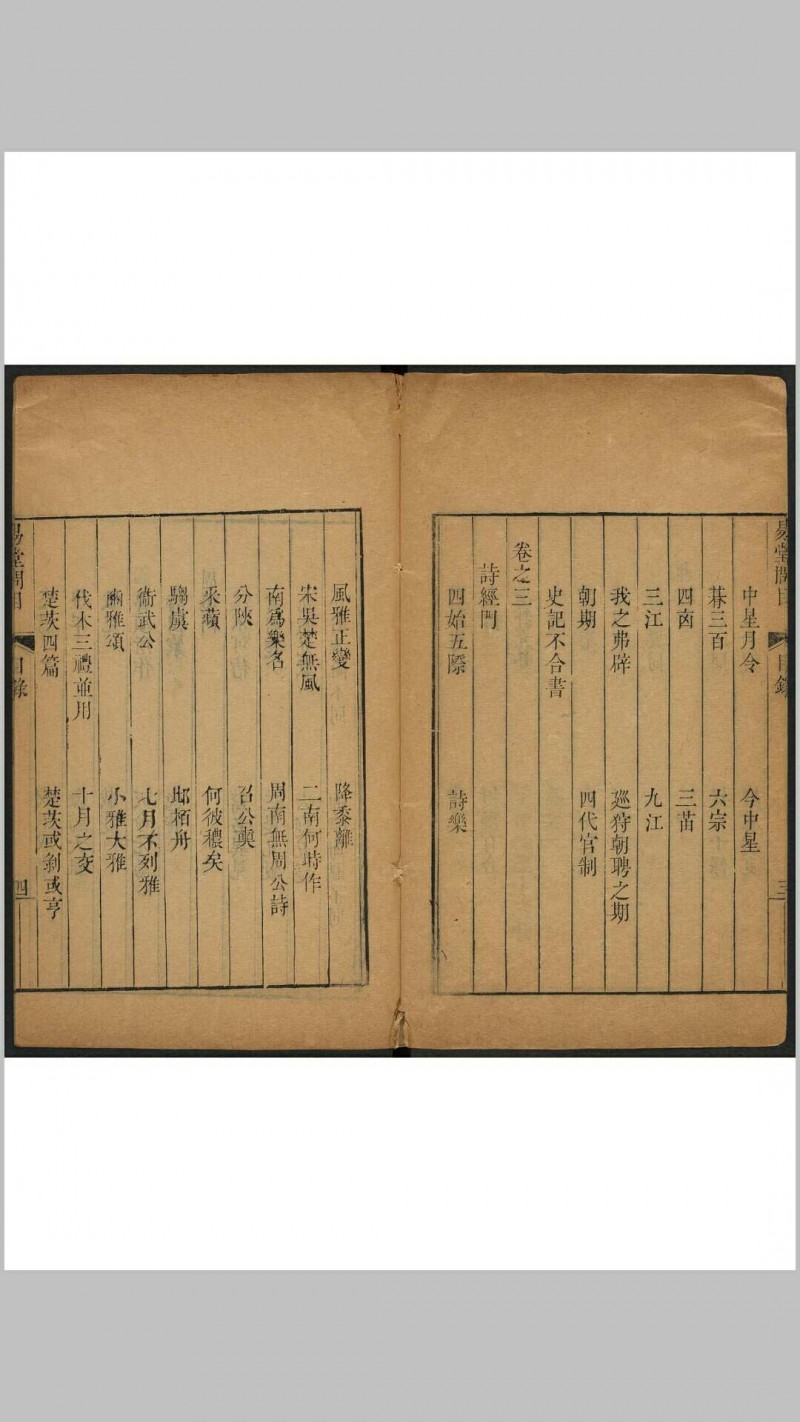 易堂問目 目錄 三
中星月令 今中星
朞三百 六宗
四凶 三苗
三江 九江
我之弗辟 廵狩朝聘之期
朝期 四代官制
史記不合書
卷之三
詩經門
四始五際 詩樂
風雅正變 降黍離
宋吳楚無風 二南何時作
南爲樂名 周南無周公詩
分陝 召公奭
采蘋 何彼穠矣
騶虞 邶栢舟
衞武公 七月不列雅
豳雅頌 小雅大雅
伐木三禮並用 十月之交
楚茨四篇 楚茨或剝或亨
易堂問目 目錄 四